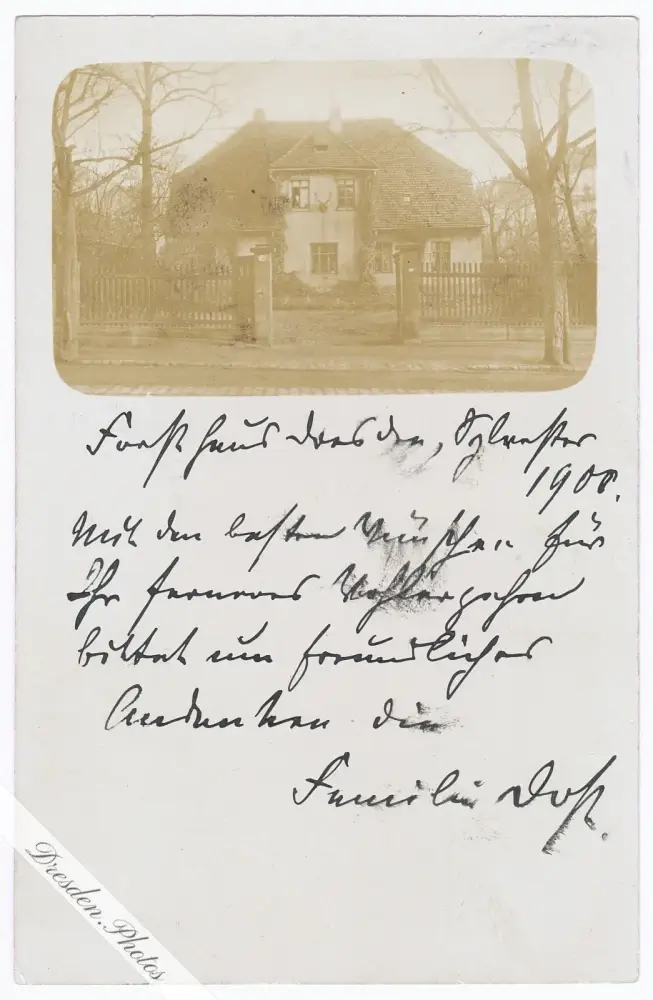 Forsthaus Dresden, Sylvester
1908.
Mit den besten Wünschen für
Ihr ferneres Wohlergehen
bittet um freundliches
Andenken die
Familie Dost.
Dresden.Photos